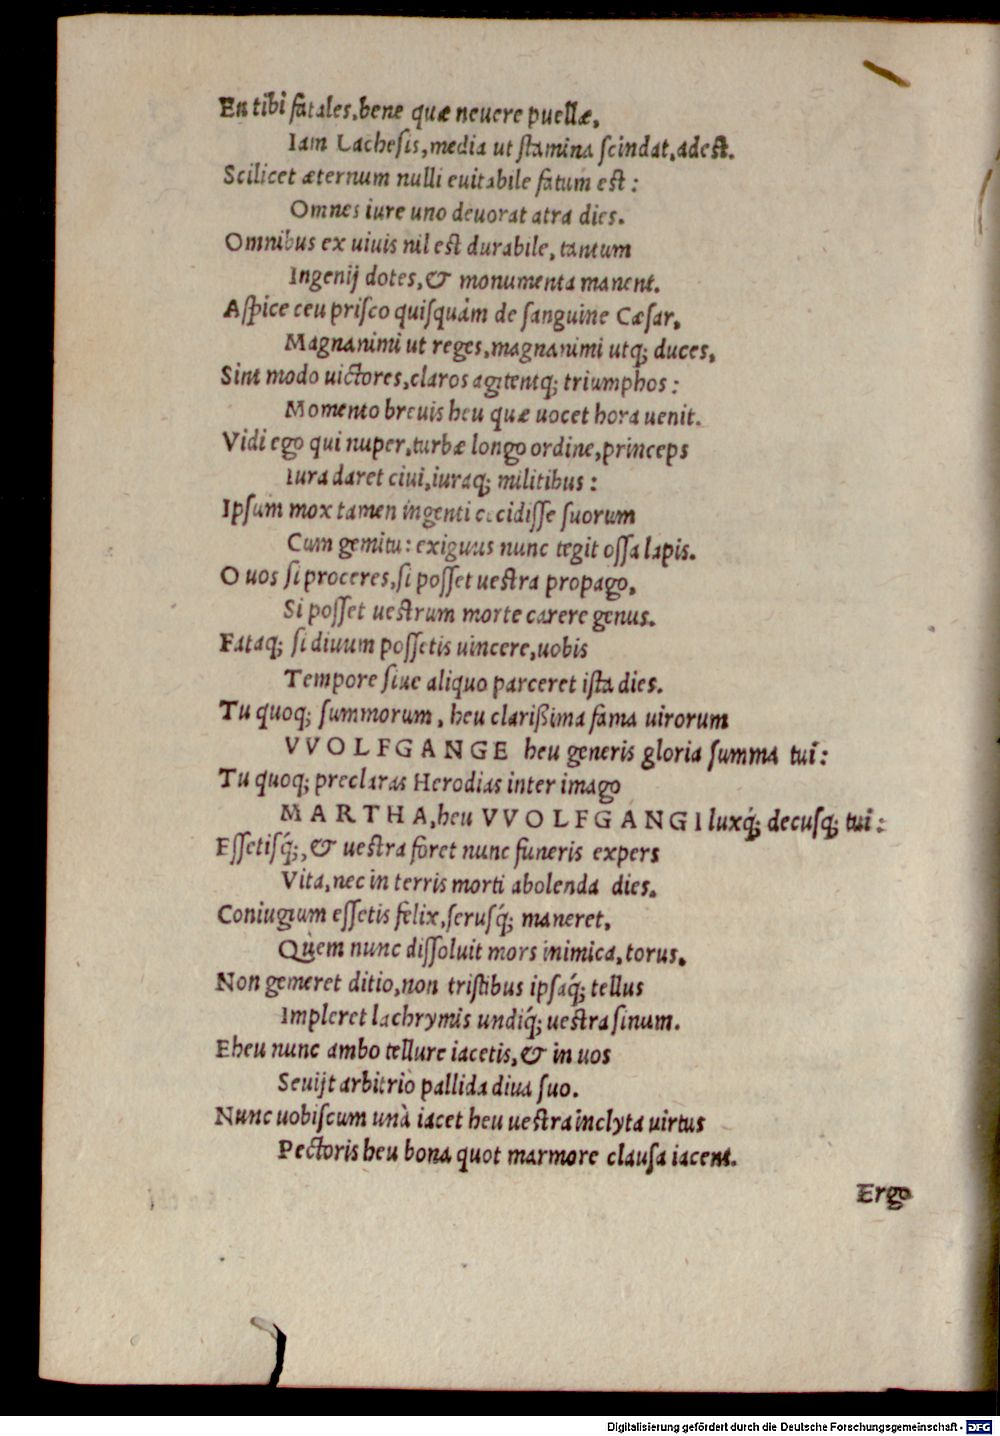 En tibi fatales, bene quæ neuere puellæ,
Iam Lachesis, media ut stamina scindat, adest.
Scilicet æternum nulli euitabile fatum est:
Omnes iure uno deuorat atra dies.
Omnibus ex uiuis nil est durabile, tantum
Ingenij dotes, & monumenta manent.
Aspice ceu prisco quisquàm de sanguine Cæsar,
Magnanimi ut reges, magnanimi utq; duces,
Sint modo uictores, claros agitentq; triumphos:
Momento breuis heu quæ uocet hora uenit.
Vidi ego qui nuper, turbæ longo ordine, princeps
Iura daret ciui, iuraq; militibus:
Ipsum mox tamen ingenti cecidisse suorum
Cum gemitu: exiguus nunc tegit ossa lapis.
O uos si proceres, si posset uestra propago,
Si posset uestrum morte carere genus.
Fataq; si diuum possetis uincere, uobis
Tempore siue aliquo parceret ista dies.
Tu quoq; summorum, heu clarißima fama uirorum
VVOLFGANGE heu generis gloria summa tui:
Tu quoq; preclaras Herodias inter imago
MARTHA, heu VVOLFGANGI luxq́; decusq; tui:
Essetisq́;, & uestra foret nunc funeris expers
Vita, nec in terris morti abolenda dies.
Coniugium essetis felix, serusq́; maneret,
Quem nunc dissoluit mors inimica, torus.
Non gemeret ditio, non tristibus ipsaq́; tellus
Impleret lachrymis undiq́; uestra sinum.
Eheu nunc ambo tellure iacetis, & in uos
Seuijt arbitrio pallida diua suo.
Nunc uobiscum unà iacet heu uestra inclyta uirtus
Pectoris heu bona quot marmore clausa iacent.
Ergo
Digitalisierung gefördert durch die Deutsche Forschungsgemeinschaft - DFG